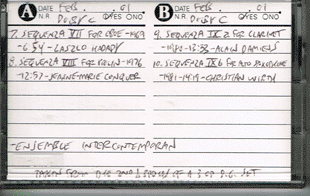 A DATE FEB. .01
N.R DOLBY C YES NO
7. SEQUENZA VII FOR OBOE - 1969
- 6:54 - LASZLO HADADY
8. SEQUENZA VIII FOR VIOLIN - 1976
- 12:57 - JEANNE-MARIE CONQUER
- ENSEMBLE INTERCONTEMPORAIN
B DATE FEB. .01
N.R. DOLBY C YES NO
9. SEQUENZA IX a FOR CLARINET
- 1980 - 13:33 - ALAIN DAMIENS
10. SEQUENZA IX b FOR ALTO SAXOPHONE
- 1981 - 14:19 - CHRISTIAN WIRTH
TAKEN FROM THE 2ND OF A 3 CD D.G. SET